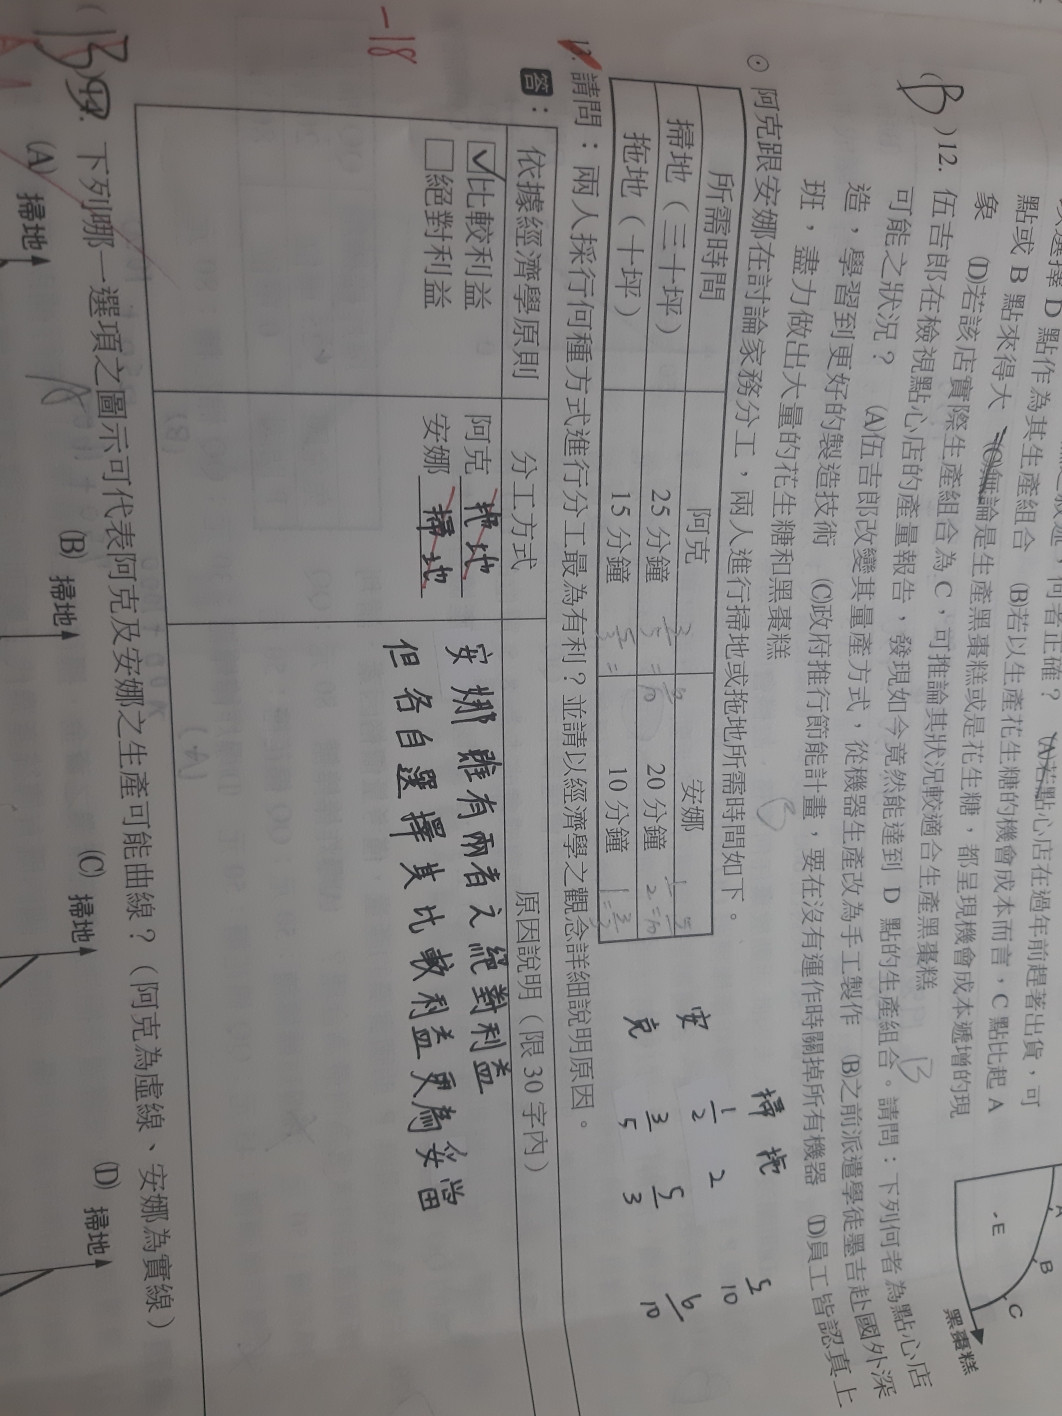 點或 B 點來得大 (C)無論是生產黑棗糕或是花生糖,都呈現機會成本遞增的現
象 (D)若該店實際生產組合為 C,可推論其狀況較適合生產黑棗糕
(B)12. 伍吉郎在檢視點心店的產量報告,發現如今竟然能達到 D 點的生產組合。請問:下列何者為點心店
可能之狀況? (A)伍吉郎改變其量產方式,從機器生產改為手工製作 (B)之前派遣學徒墨吉赴國外深
造,學習到更好的製造技術 (C)政府推行節能計畫,要在沒有運作時關掉所有機器 (D)員工皆認真上
班,盡力做出大量的花生糖和黑棗糕
B
A
B
C
E
黑棗糕
⊙ 阿克跟安娜在討論家務分工,兩人進行掃地或拖地所需時間如下。
所需時間 阿克 安娜
掃地(三十坪) 25 分鐘 20 分鐘
拖地(十坪) 15 分鐘 10 分鐘
掃 拖
安 1/2 2
克 3/5 5/3
5/10
6/10
13. 請問:兩人採行何種方式進行分工最為有利?並請以經濟學之觀念詳細說明原因。
答:
依據經濟學原則 分工方式 原因說明(限 30 字內)
☑比較利益 阿克 拖地
□絕對利益 安娜 掃地
安娜雖有兩者之絕對利益
但各自選擇其比較利益更為妥當
-18
14. 下列哪一選項之圖示可代表阿克及安娜之生產可能曲線?(阿克為虛線、安娜為實線)
(A) 掃地
(B) 掃地
(C) 掃地
(D) 掃地